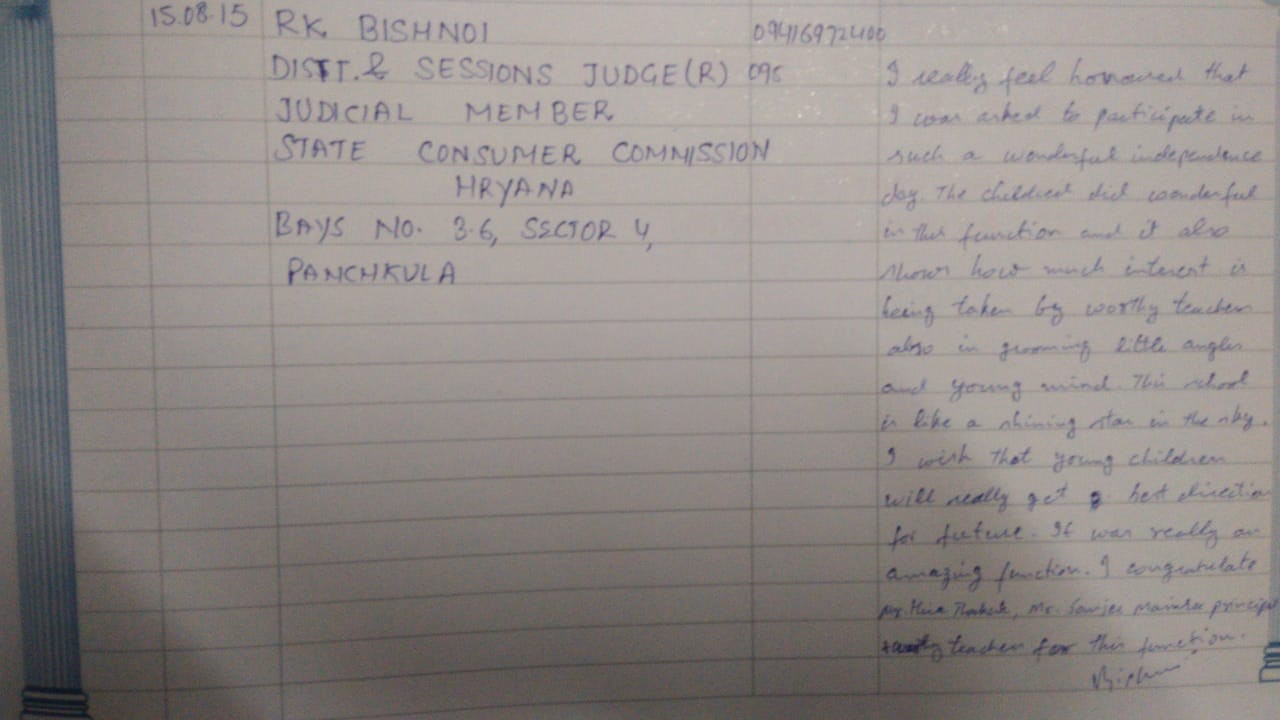 15.08.15
RK BISHNOI
DISTT. & SESSIONS JUDGE(R)
JUDICIAL MEMBER
STATE CONSUMER COMMISSION
HRYANA
BAYS NO. 3-6, SECTOR 4,
PANCHKULA
09416972400
095
I really feel honoured that
I was asked to participate in
such a wonderful independence
day. The children did wonderful
in this function and it also
shows how much interest is
being taken by worthy teachers
also in grooming little angles
and young mind. This school
is like a shining star in the sky.
I wish that young children
will really get best direction
for future. It was really an
amazing function. I congratulate
Mr. principal
teachers for this function.